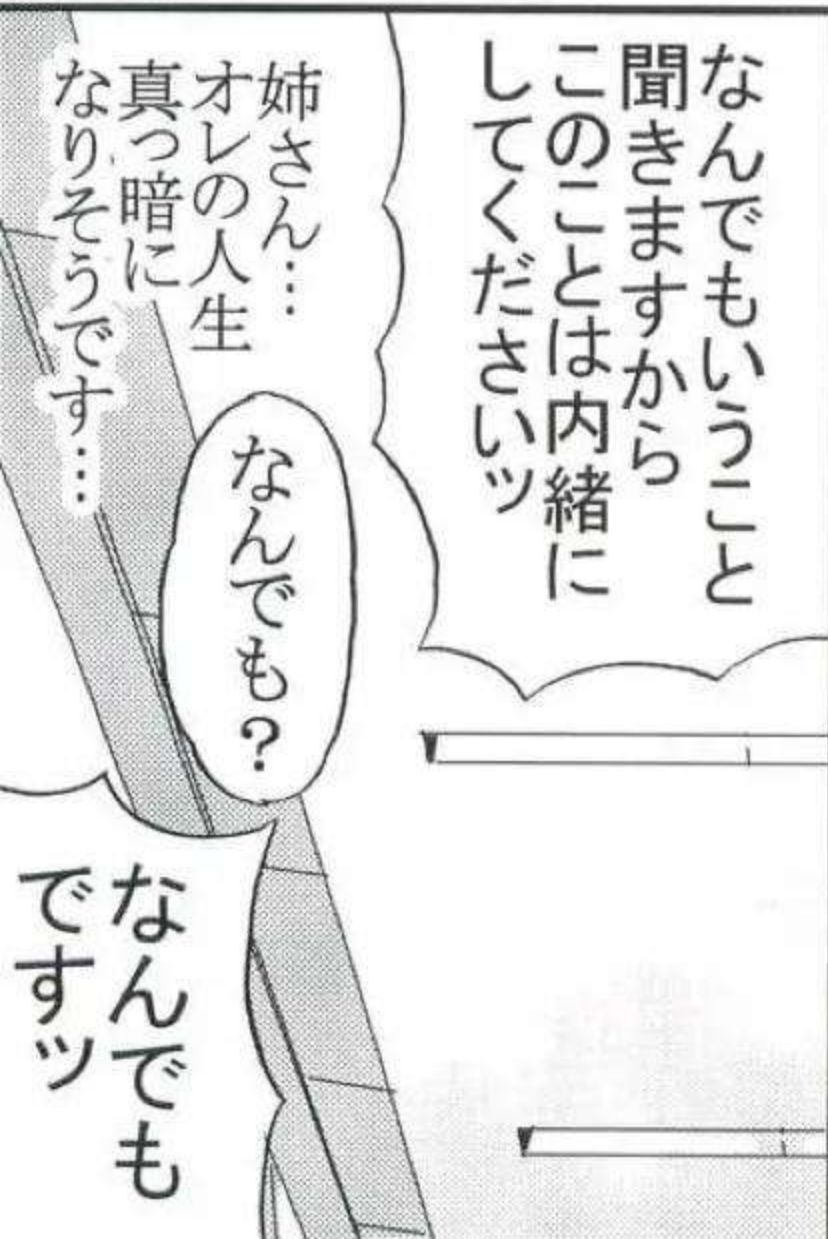 なんでもいうこと
聞きますから
このことは内緒に
してくださいッ
姉さん…
オレの人生
真っ暗に
なりそうです…
なんでも？
なんでも
ですッ